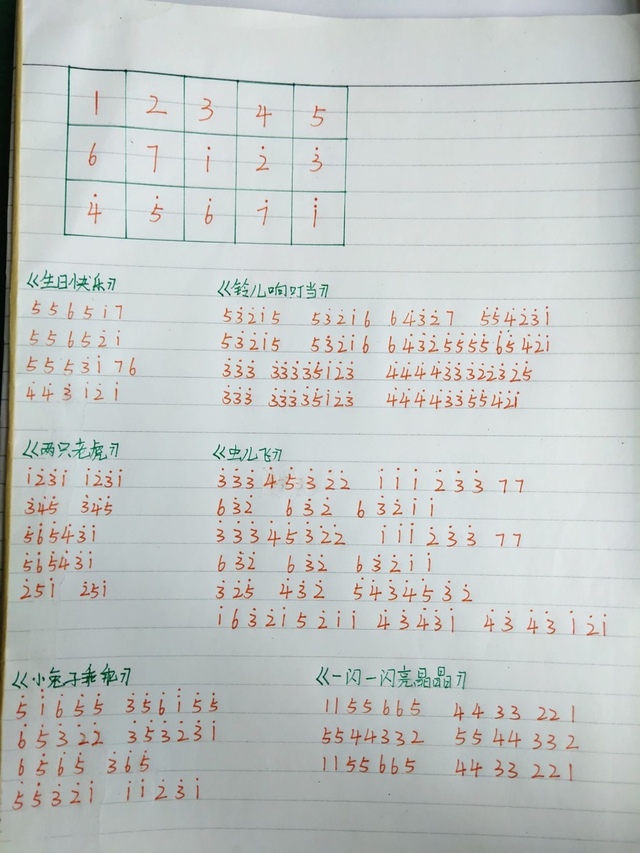 1 2 3 4 5
6 7 i 2̇ 3̇
4̇ 5̇ 6̇ 7̇ i
《生日快乐》
5 5 6 5 i 7
5 5 6 5 2̇ i
5 5 5̇ 3̇ i 7 6
4̇ 4̇ 3̇ i 2̇ i
《铃儿响叮当》
5 3̇ 2̇ i 5 5 3̇ 2̇ i 6 6 4̇ 3̇ 2̇ 7 5̇ 5̇ 4̇ 2̇ 3̇ i
5 3̇ 2̇ i 5 5 3̇ 2̇ i 6 6 4̇ 3̇ 2̇ 5̇ 5̇ 5̇ 5̇ 6̇ 5̇ 4̇ 2̇ i
3̇ 3̇ 3̇ 3̇ 3̇ 3̇ 3̇ 5̇ i 2̇ 3̇ 4̇ 4̇ 4̇ 4̇ 3̇ 3̇ 2̇ 2̇ 3̇ 2̇ 5̇
3̇ 3̇ 3̇ 3̇ 3̇ 3̇ 3̇ 5̇ i 2̇ 3̇ 4̇ 4̇ 4̇ 4̇ 3̇ 3̇ 5̇ 5̇ 4̇ 2̇ i
《两只老虎》
i 2̇ 3̇ i i 2̇ 3̇ i
3̇ 4̇ 5̇ 3̇ 4̇ 5̇
5̇ 6̇ 5̇ 4̇ 3̇ i
5̇ 6̇ 5̇ 4̇ 3̇ i
2̇ 5 i 2̇ 5 i
《虫儿飞》
3̇ 3̇ 3̇ 4̇ 5̇ 3̇ 2̇ 2̇ i i i 2̇ 3̇ 3̇ 7 7
6 3̇ 2̇ 6 3̇ 2̇ 6 3̇ 2̇ i i
3̇ 3̇ 3̇ 4̇ 5̇ 3̇ 2̇ 2̇ i i i 2̇ 3̇ 3̇ 7 7
6 3̇ 2̇ 6 3̇ 2̇ 6 3̇ 2̇ i i
3̇ 2̇ 5̇ 4̇ 3̇ 2̇ 5̇ 4̇ 3̇ 4̇ 5̇ 3̇ 2̇
i 6 3̇ 2̇ i 5 2̇ i i 4̇ 3̇ 4̇ 3̇ i 4̇ 3̇ 4̇ 3̇ i 2̇ i
《小兔子乖乖》
5̇ i 6̇ 5̇ 5̇ 3̇ 5̇ 6̇ i 5̇ 5̇
6̇ 5̇ 3̇ 2̇ 2̇ 3̇ 5̇ 3̇ 2̇ 3̇ i
6 5̇ 6̇ 5̇ 3̇ 6̇ 5̇
5̇ 5̇ 3̇ 2̇ i i i 2̇ 3̇ i
《一闪一闪亮晶晶》
1 1 5 5 6 6 5 4 4 3 3 2 2 1
5 5 4 4 3 3 2 5 5 4 4 3 3 2
1 1 5 5 6 6 5 4 4 3 3 2 2 1